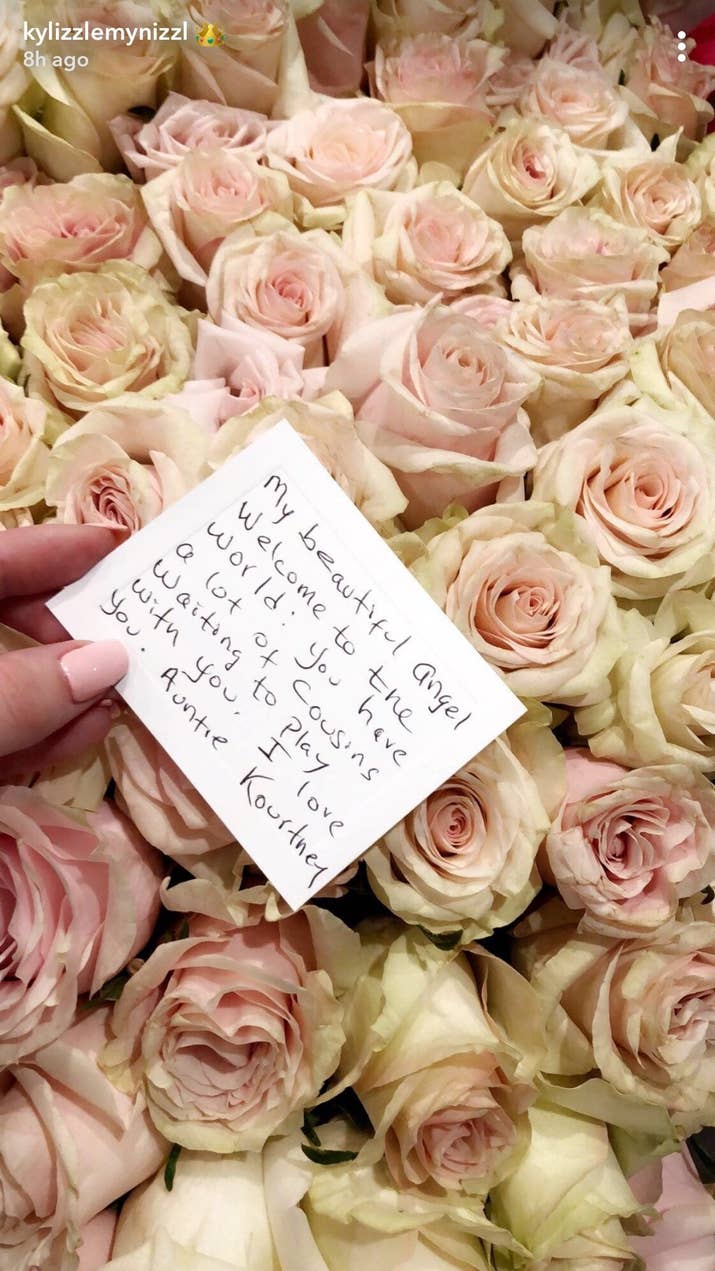 kylizzlemynizzl 👑
8h ago
My beautiful Angel
Welcome to the
World. You have
a lot of Cousins
Waiting to play
with you. I love
you. Auntie Kourtney